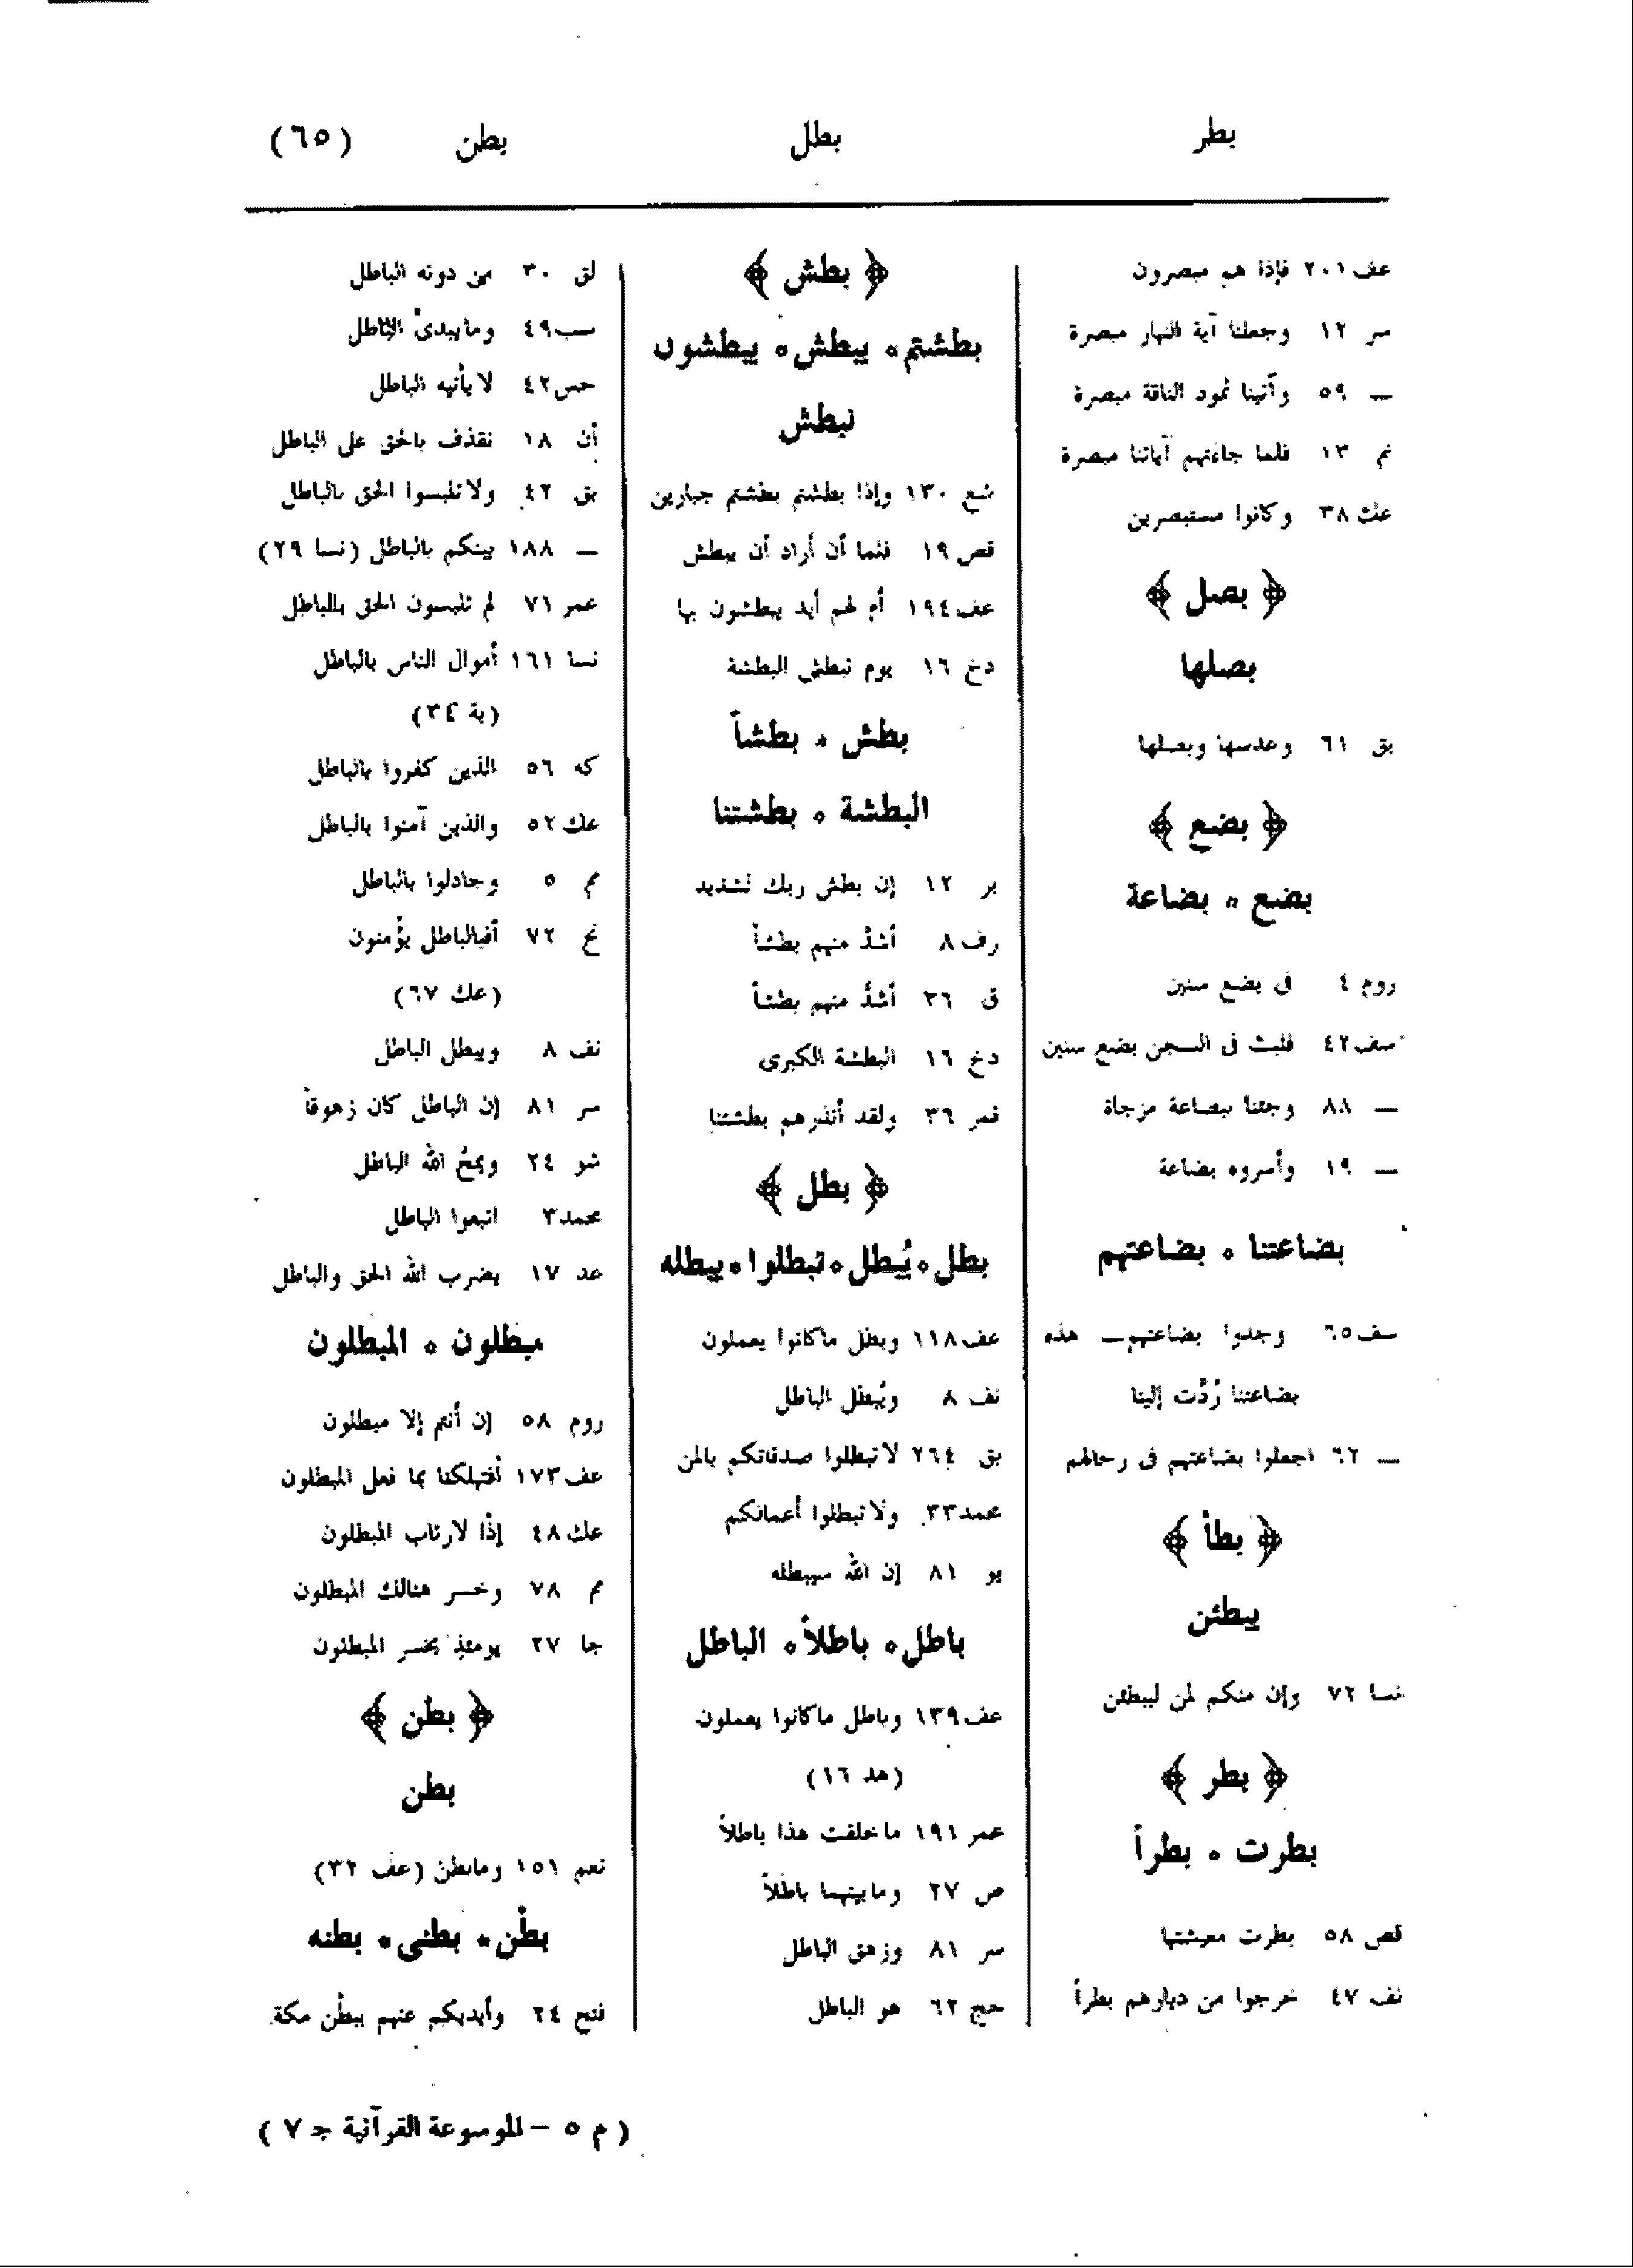 بطر بطل بطن (٦٥)
عف ٢٠١ فإذا هم مبصرون
سر ١٢ وجعلنا آية النهار مبصرة
— ٥٩ وآتينا ثمود الناقة مبصرة
نم ١٣ فلما جاءتهم آياتنا مبصرة
عك ٣٨ وكانوا مستبصرين
﴿ بصل ﴾
بصلها
بق ٦١ وعدسها وبصلها
﴿ بضع ﴾
بضع ٥ بضاعة
روم ٤ فى بضع سنين
سف ٤٢ فلبث فى السجن بضع سنين
— ٨٨ وجئنا ببضاعة مزجاة
— ١٩ وأسروه بضاعة
بضاعتنا ٥ بضاعتهم
سف ٦٥ وجدوا بضاعتهم — هذه
بضاعتنا رُدَّت إلينا
— ٦٢ اجعلوا بضاعتهم فى رحالهم
﴿ بطأ ﴾
يبطئن
نسا ٧٢ وإن منكم لمن ليبطئن
﴿ بطر ﴾
بطرت ٥ بطراً
قص ٥٨ بطرت معيشتها
نف ٤٧ خرجوا من ديارهم بطراً
﴿ بطش ﴾
بطشتم ٥ يبطش ٥ يبطشون
نبطش
شع ١٣٠ وإذا بطشتم بطشتم جبارين
قص ١٩ فلما أن أراد أن يبطش
عف ١٩٤ أم لهم أيد يبطشون بها
دخ ١٦ يوم نبطش البطشة
بطش ٥ بطشاً
البطشة ٥ بطشتنا
بر ١٢ إن بطش ربك لشديد
رف ٨ أشدَّ منهم بطشاً
ق ٣٦ أشدُّ منهم بطشاً
دخ ١٦ البطشة الكبرى
قمر ٣٦ ولقد أنذرهم بطشتنا
﴿ بطل ﴾
بطل ٥ يُبطل ٥ تبطلوا ٥ يبطله
عف ١١٨ وبطل ما كانوا يعملون
نف ٨ ويُبطل الباطل
بق ٢٦٤ لا تبطلوا صدقاتكم بالمن
محمد ٣٣ ولا تبطلوا أعمالكم
يو ٨١ إن الله سيبطله
باطل ٥ باطلاً ٥ الباطل
عف ١٣٩ وباطل ما كانوا يعملون
(هد ١٦)
عمر ١٩١ ما خلقت هذا باطلاً
ص ٢٧ وما بينهما باطلاً
سر ٨١ وزهق الباطل
حج ٦٢ هو الباطل
لق ٣٠ من دونه الباطل
سب ٤٩ وما يبدئ الباطل
حس ٤٢ لا يأتيه الباطل
أن ١٨ نقذف بالحق على الباطل
بق ٤٢ ولا تلبسوا الحق بالباطل
— ١٨٨ بينكم بالباطل (نسا ٢٩)
عمر ٧١ لم تلبسون الحق بالباطل
نسا ١٦١ أموال الناس بالباطل
(بة ٣٤)
كه ٥٦ الذين كفروا بالباطل
عك ٥٢ والذين آمنوا بالباطل
مم ٥ وجادلوا بالباطل
نح ٧٢ أفبالباطل يؤمنون
(عك ٦٧)
نف ٨ ويبطل الباطل
سر ٨١ إن الباطل كان زهوقاً
شو ٢٤ ويمحُ الله الباطل
محمد ٣ اتبعوا الباطل
عد ١٧ يضرب الله الحق والباطل
مبطلون ٥ المبطلون
روم ٥٨ إن أنتم إلا مبطلون
عف ١٧٣ أفتهلكنا بما فعل المبطلون
عك ٤٨ إذًا لارتاب المبطلون
مم ٧٨ وخسر هنالك المبطلون
جا ٢٧ يومئذٍ يخسر المبطلون
﴿ بطن ﴾
بطن
نعم ١٥١ وما بطن (عف ٣٢)
بطْن ٥ بطنى ٥ بطنه
فتح ٢٤ وأيديكم عنهم ببطْن مكة
( م ٥ – الموسوعة القرآنية جـ ٧ )